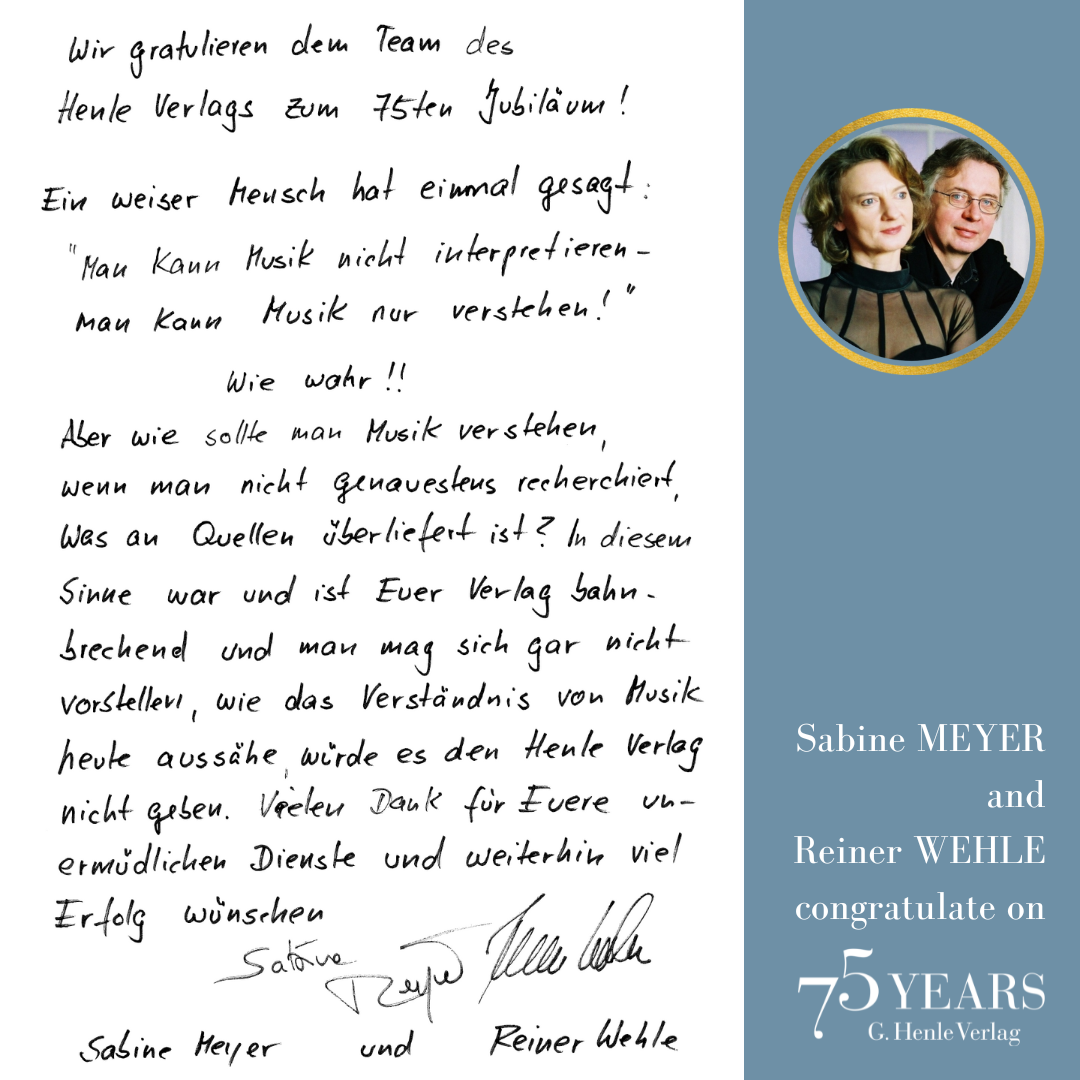 Wir gratulieren dem Team des
Henle Verlags zum 75ten Jubiläum!
Ein weiser Mensch hat einmal gesagt:
"Man kann Musik nicht interpretieren -
man kann Musik nur verstehen!"
Wie wahr!!
Aber wie sollte man Musik verstehen,
wenn man nicht genauestens recherchiert,
Was an Quellen überliefert ist? In diesem
Sinne war und ist Euer Verlag bahn-
brechend und man mag sich gar nicht
vorstellen, wie das Verständnis von Musik
heute aussähe, würde es den Henle Verlag
nicht geben. Vielen Dank für Euere un-
ermüdlichen Dienste und weiterhin viel
Erfolg wünschen
Sabine Meyer
Sabine Meyer und Reiner Wehle
Sabine MEYER
and
Reiner WEHLE
congratulate on
75 YEARS
G. Henle Verlag